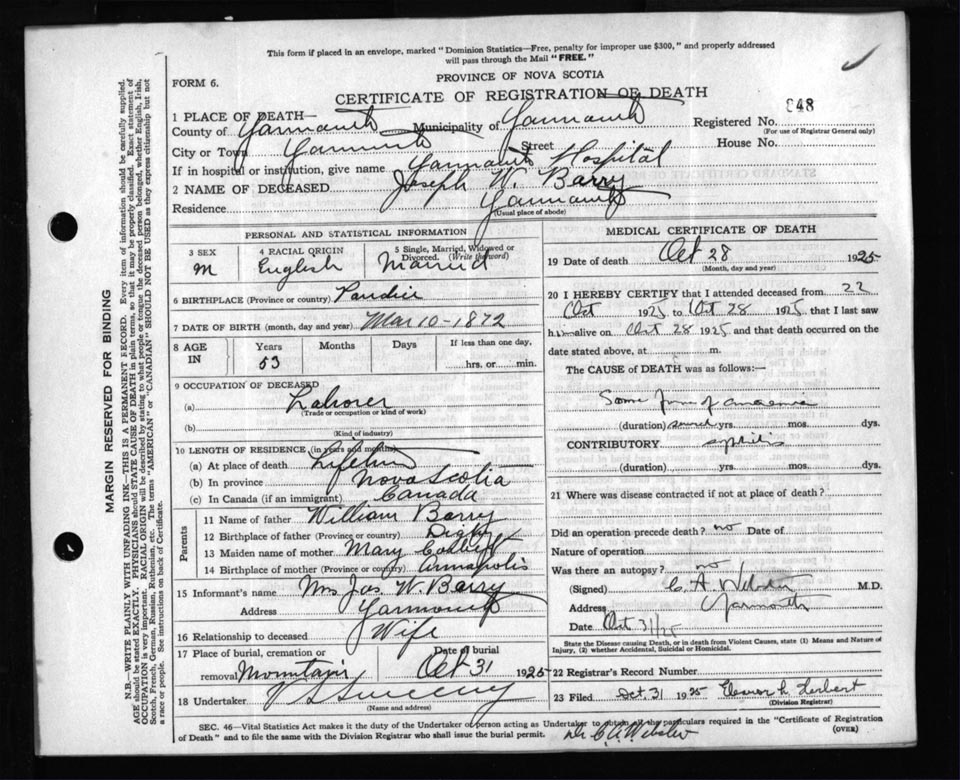 This form if placed in an envelope, marked "Dominion Statistics—Free, penalty for improper use $300," and properly addressed
will pass through the Mail "FREE."
PROVINCE OF NOVA SCOTIA
FORM 6.
CERTIFICATE OF REGISTRATION OF DEATH
848
1 PLACE OF DEATH—
County of Yarmouth Municipality of Yarmouth Registered No.
(For use of Registrar General only)
City or Town Yarmouth Street House No.
If in hospital or institution, give name Yarmouth Hospital
2 NAME OF DECEASED Joseph W. Barry
Residence Yarmouth
(Usual place of abode)
PERSONAL AND STATISTICAL INFORMATION
3 SEX 4 RACIAL ORIGIN 5 Single, Married, Widowed or Divorced. (Write the word)
M English Married
6 BIRTHPLACE (Province or country)
7 DATE OF BIRTH (month, day and year) Mar 10-1872
8 AGE IN Years Months Days If less than one day,
53 hrs. or min.
9 OCCUPATION OF DECEASED
(a) Laborer
(Trade or occupation or kind of work)
(b)
(Kind of industry)
10 LENGTH OF RESIDENCE (in years and months)
(a) At place of death Lifetime
(b) In province Nova Scotia
(c) In Canada (if an immigrant) Canada
Parents
11 Name of father William Barry
12 Birthplace of father (Province or country) Digby
13 Maiden name of mother Mary
14 Birthplace of mother (Province or country) Annapolis
15 Informant's name Mrs Jos. W. Barry
Address Yarmouth
16 Relationship to deceased Wife
17 Place of burial, cremation or Date of burial
removal Mountain Oct 31 1925
18 Undertaker V S Sweeny
(Name and address)
MEDICAL CERTIFICATE OF DEATH
19 Date of death Oct 28 1925
(Month, day and year)
20 I HEREBY CERTIFY that I attended deceased from 22
Oct 1925 to Oct 28 1925 that I last saw
him alive on Oct 28 1925 and that death occurred on the
date stated above, at m.
The CAUSE of DEATH was as follows:—
Some form of anaemia
(duration) yrs. mos. dys.
CONTRIBUTORY syphilis
(duration) yrs. mos. dys.
21 Where was disease contracted if not at place of death?
Did an operation precede death? no Date of
Nature of operation
Was there an autopsy? no
(Signed) C. A. Webster M.D.
Address Yarmouth
Date Oct 31/25
State the Disease causing Death, or in death from Violent Causes, state (1) Means and Nature of
Injury, (2) whether Accidental, Suicidal or Homicidal.
22 Registrar's Record Number
23 Filed Oct. 31 1925 Eleanor L. Herbert
(Division Registrar)
SEC. 46—Vital Statistics Act makes it the duty of the Undertaker or person acting as Undertaker to obtain all the particulars required in the "Certificate of Registration
of Death" and to file the same with the Division Registrar who shall issue the burial permit.
(OVER)
Dr C. A. Webster
MARGIN RESERVED FOR BINDING
N.B.—WRITE PLAINLY WITH UNFADING INK—THIS IS A PERMANENT RECORD. Every item of information should be carefully supplied.
AGE should be stated EXACTLY. PHYSICIANS should STATE CAUSE OF DEATH in plain terms, so that it may be properly classified. Exact statement of
OCCUPATION is very important. RACIAL ORIGIN will be described by stating to what people or tongue the deceased person belonged, whether English, Irish,
Scotch, French, German, Russian, Ruthenian, etc. The terms "AMERICAN" or "CANADIAN" SHOULD NOT BE USED as they express citizenship but not
a race or people. See instructions on back of Certificate.